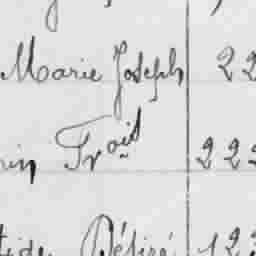 Marie Joseph 22
rin Froid 222
tide Désiré 122